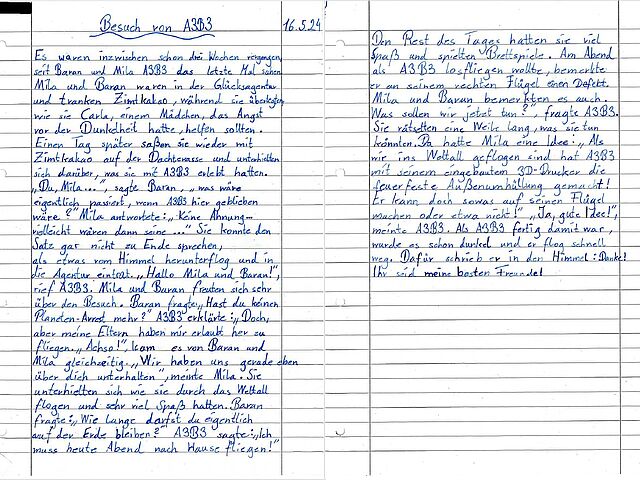 Besuch von A3B3
16.5.24
Es waren inzwischen schon drei Wochen vergangen,
seit Baran und Mila A3B3 das letzte Mal sahen.
Mila und Baran waren in der Glücksagentur
und tranken Zimtkakao, während sie überlegten,
wie sie Carla, einem Mädchen, das Angst
vor der Dunkelheit hatte, helfen sollten.
Einen Tag später saßen sie wieder mit
Zimtkakao auf der Dachterrasse und unterhielten
sich darüber, was sie mit A3B3 erlebt hatten.
„Du, Mila...", sagte Baran, „was wäre
eigentlich passiert, wenn A3B3 hier geblieben
wäre?" Mila antwortete: „Keine Ahnung-
vielleicht wären dann seine ..." Sie konnte den
Satz gar nicht zu Ende sprechen,
als etwas vom Himmel herunterflog und in
die Agentur eintrat. „Hallo Mila und Baran!",
rief A3B3. Mila und Baran freuten sich sehr
über den Besuch. Baran fragte: „Hast du keinen
Planeten-Arrest mehr?" A3B3 erklärte: „Doch,
aber meine Eltern haben mir erlaubt her zu
fliegen. „Achso!", kam es von Baran und
Mila gleichzeitig. „Wir haben uns gerade eben
über dich unterhalten", meinte Mila. Sie
unterhielten sich wie sie durch das Weltall
flogen und sehr viel Spaß hatten. Baran
fragte: „Wie lange darfst du eigentlich
auf der Erde bleiben?" A3B3 sagte: „Ich
muss heute Abend nach Hause fliegen!"
Den Rest des Tages hatten sie viel
Spaß und spielten Brettspiele. Am Abend
als A3B3 losfliegen wollte, bemerkte
er an seinem rechten Flügel einen Defekt.
Mila und Baran bemerkten es auch.
Was sollen wir jetzt tun?", fragte A3B3.
Sie rätselten eine Weile lang, was sie tun
könnten. Da hatte Mila eine Idee: „Als
wir ins Weltall geflogen sind hat A3B3
mit seinem eingebauten 3D-Drucker die
feuerfeste Außenumhüllung gemacht!
Er kann doch sowas auf seinen Flügel
machen oder etwa nicht!" „Ja, gute Idee!",
meinte A3B3. Als A3B3 fertig damit war,
wurde es schon dunkel und er flog schnell
weg. Dafür schrieb er in den Himmel: Danke!
Ihr seid meine besten Freunde!